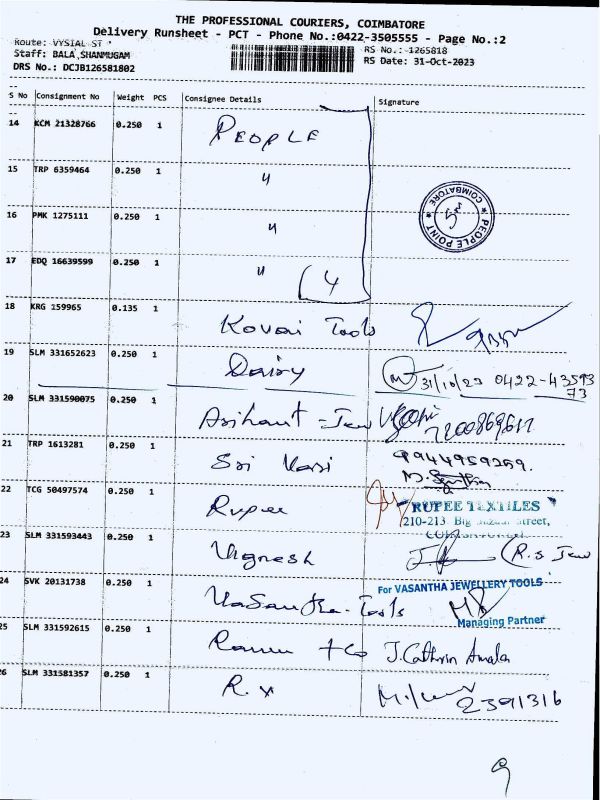 THE PROFESSIONAL COURIERS, COIMBATORE
Delivery Runsheet - PCT - Phone No.:0422-3505555 - Page No.:2
Route: VYSIAL ST
Staff: BALA,SHANMUGAM
DRS No.: DCJB126581802
RS No.: 1265818
RS Date: 31-Oct-2023
S No Consignment No Weight PCS Consignee Details Signature
14 KCM 21328766 0.250 1 PEOPLE
15 TRP 6359464 0.250 1 "
16 PMK 1275111 0.250 1 "
PEOPLE POINT * COIMBATORE *
17 EDQ 16639599 0.250 1 " 4
18 KRG 159965 0.135 1 Kovai Tools
19 SLM 331652623 0.250 1 Dairy 31/10/23 0422-43593
73
20 SLM 331590075 0.250 1 Arihant - Jew
21 TRP 1613281 0.250 1 Sri Vari 9944959269.
22 TCG 50497574 0.250 1 Rupee RUPEE TEXTILES
210-213 Big Bazaar Street,
23 SLM 331593443 0.250 1 Vignesh (R.S Jew
24 SVK 20131738 0.250 1 Vasantha-Tools For VASANTHA JEWELLERY TOOLS
Managing Partner
25 SLM 331592615 0.250 1 +Co J.Cathrin Amala
26 SLM 331581357 0.250 1 R.x 2391316
9